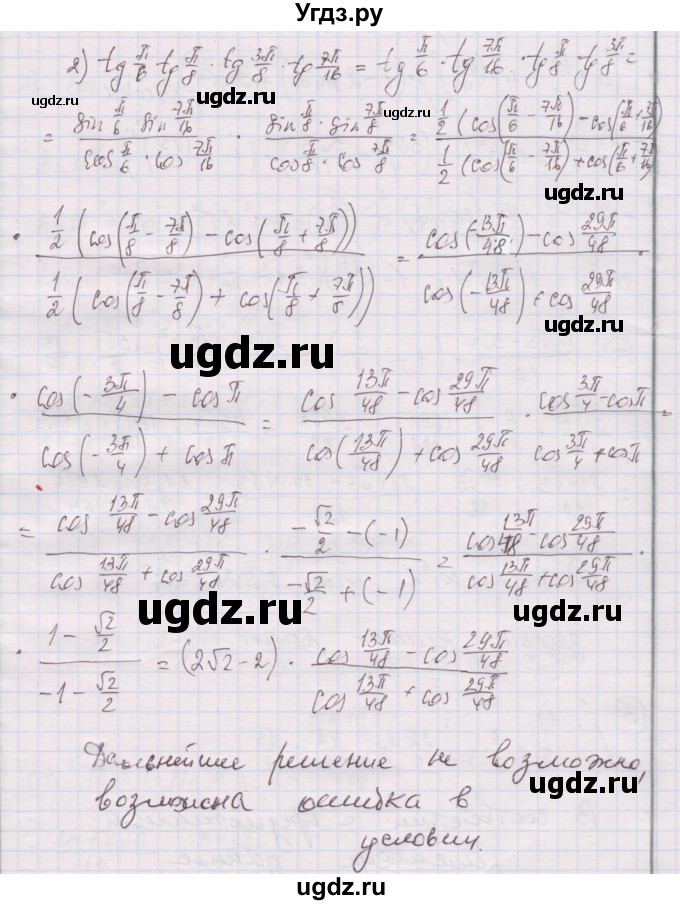 Угдз.ру
2) tg π/6 · tg π/8 · tg 3π/8 · tg 7π/16 = tg π/6 · tg 7π/16 · tg π/8 · tg 3π/8 =
ugdz.ru
ugdz.ru
= (sin π/6 · sin 7π/16)/(cos π/6 · cos 7π/16) · (sin π/8 · sin 7π/8)/(cos π/8 · cos 7π/8) = (1/2 (cos(π/6 - 7π/16) - cos(π/6 + 7π/16)))/(1/2 (cos(π/6 - 7π/16) + cos(π/6 + 7π/16)))
ugdz.ru
· (1/2 (cos(π/8 - 7π/8) - cos(π/8 + 7π/8)))/(1/2 (cos(π/8 - 7π/8) + cos(π/8 + 7π/8))) = (cos(-13π/48) - cos 29π/48)/(cos(-13π/48) + cos 29π/48) ·
ugdz.ru
ugdz.ru
· (cos(-3π/4) - cos π)/(cos(-3π/4) + cos π) = (cos 13π/48 - cos 29π/48)/(cos(13π/48) + cos 29π/48) · (cos 3π/4 - cos π)/(cos 3π/4 + cos π) =
= (cos 13π/48 - cos 29π/48)/(cos 13π/48 + cos 29π/48) · (-√2/2 - (-1))/(-√2/2 + (-1)) = (cos 13π/48 - cos 29π/48)/(cos 13π/48 + cos 29π/48) ·
ugdz.ru
ugdz.ru
· (1 - √2/2)/(-1 - √2/2) = (2√2 - 2) · (cos 13π/48 - cos 29π/48)/(cos 13π/48 + cos 29π/48)
Дальнейшее решение не возможно,
ugdz.ru
возможна ошибка в
условии.
ugdz.ru
ugdz.ru